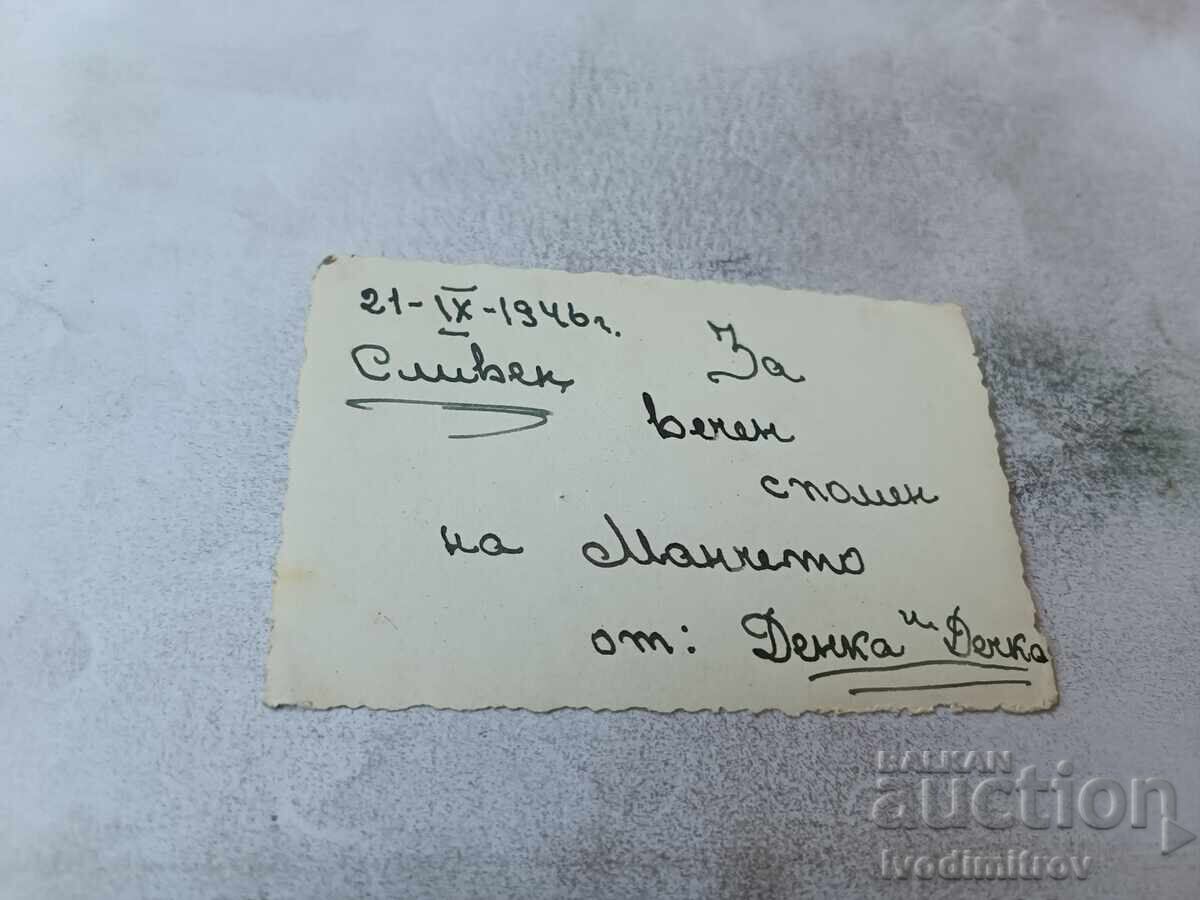 21-IX-1946г.
Сливен
За
вечен
спомен
на Манчето
от: Денка и Дечка
BALKAN
auction
ivodimitrov